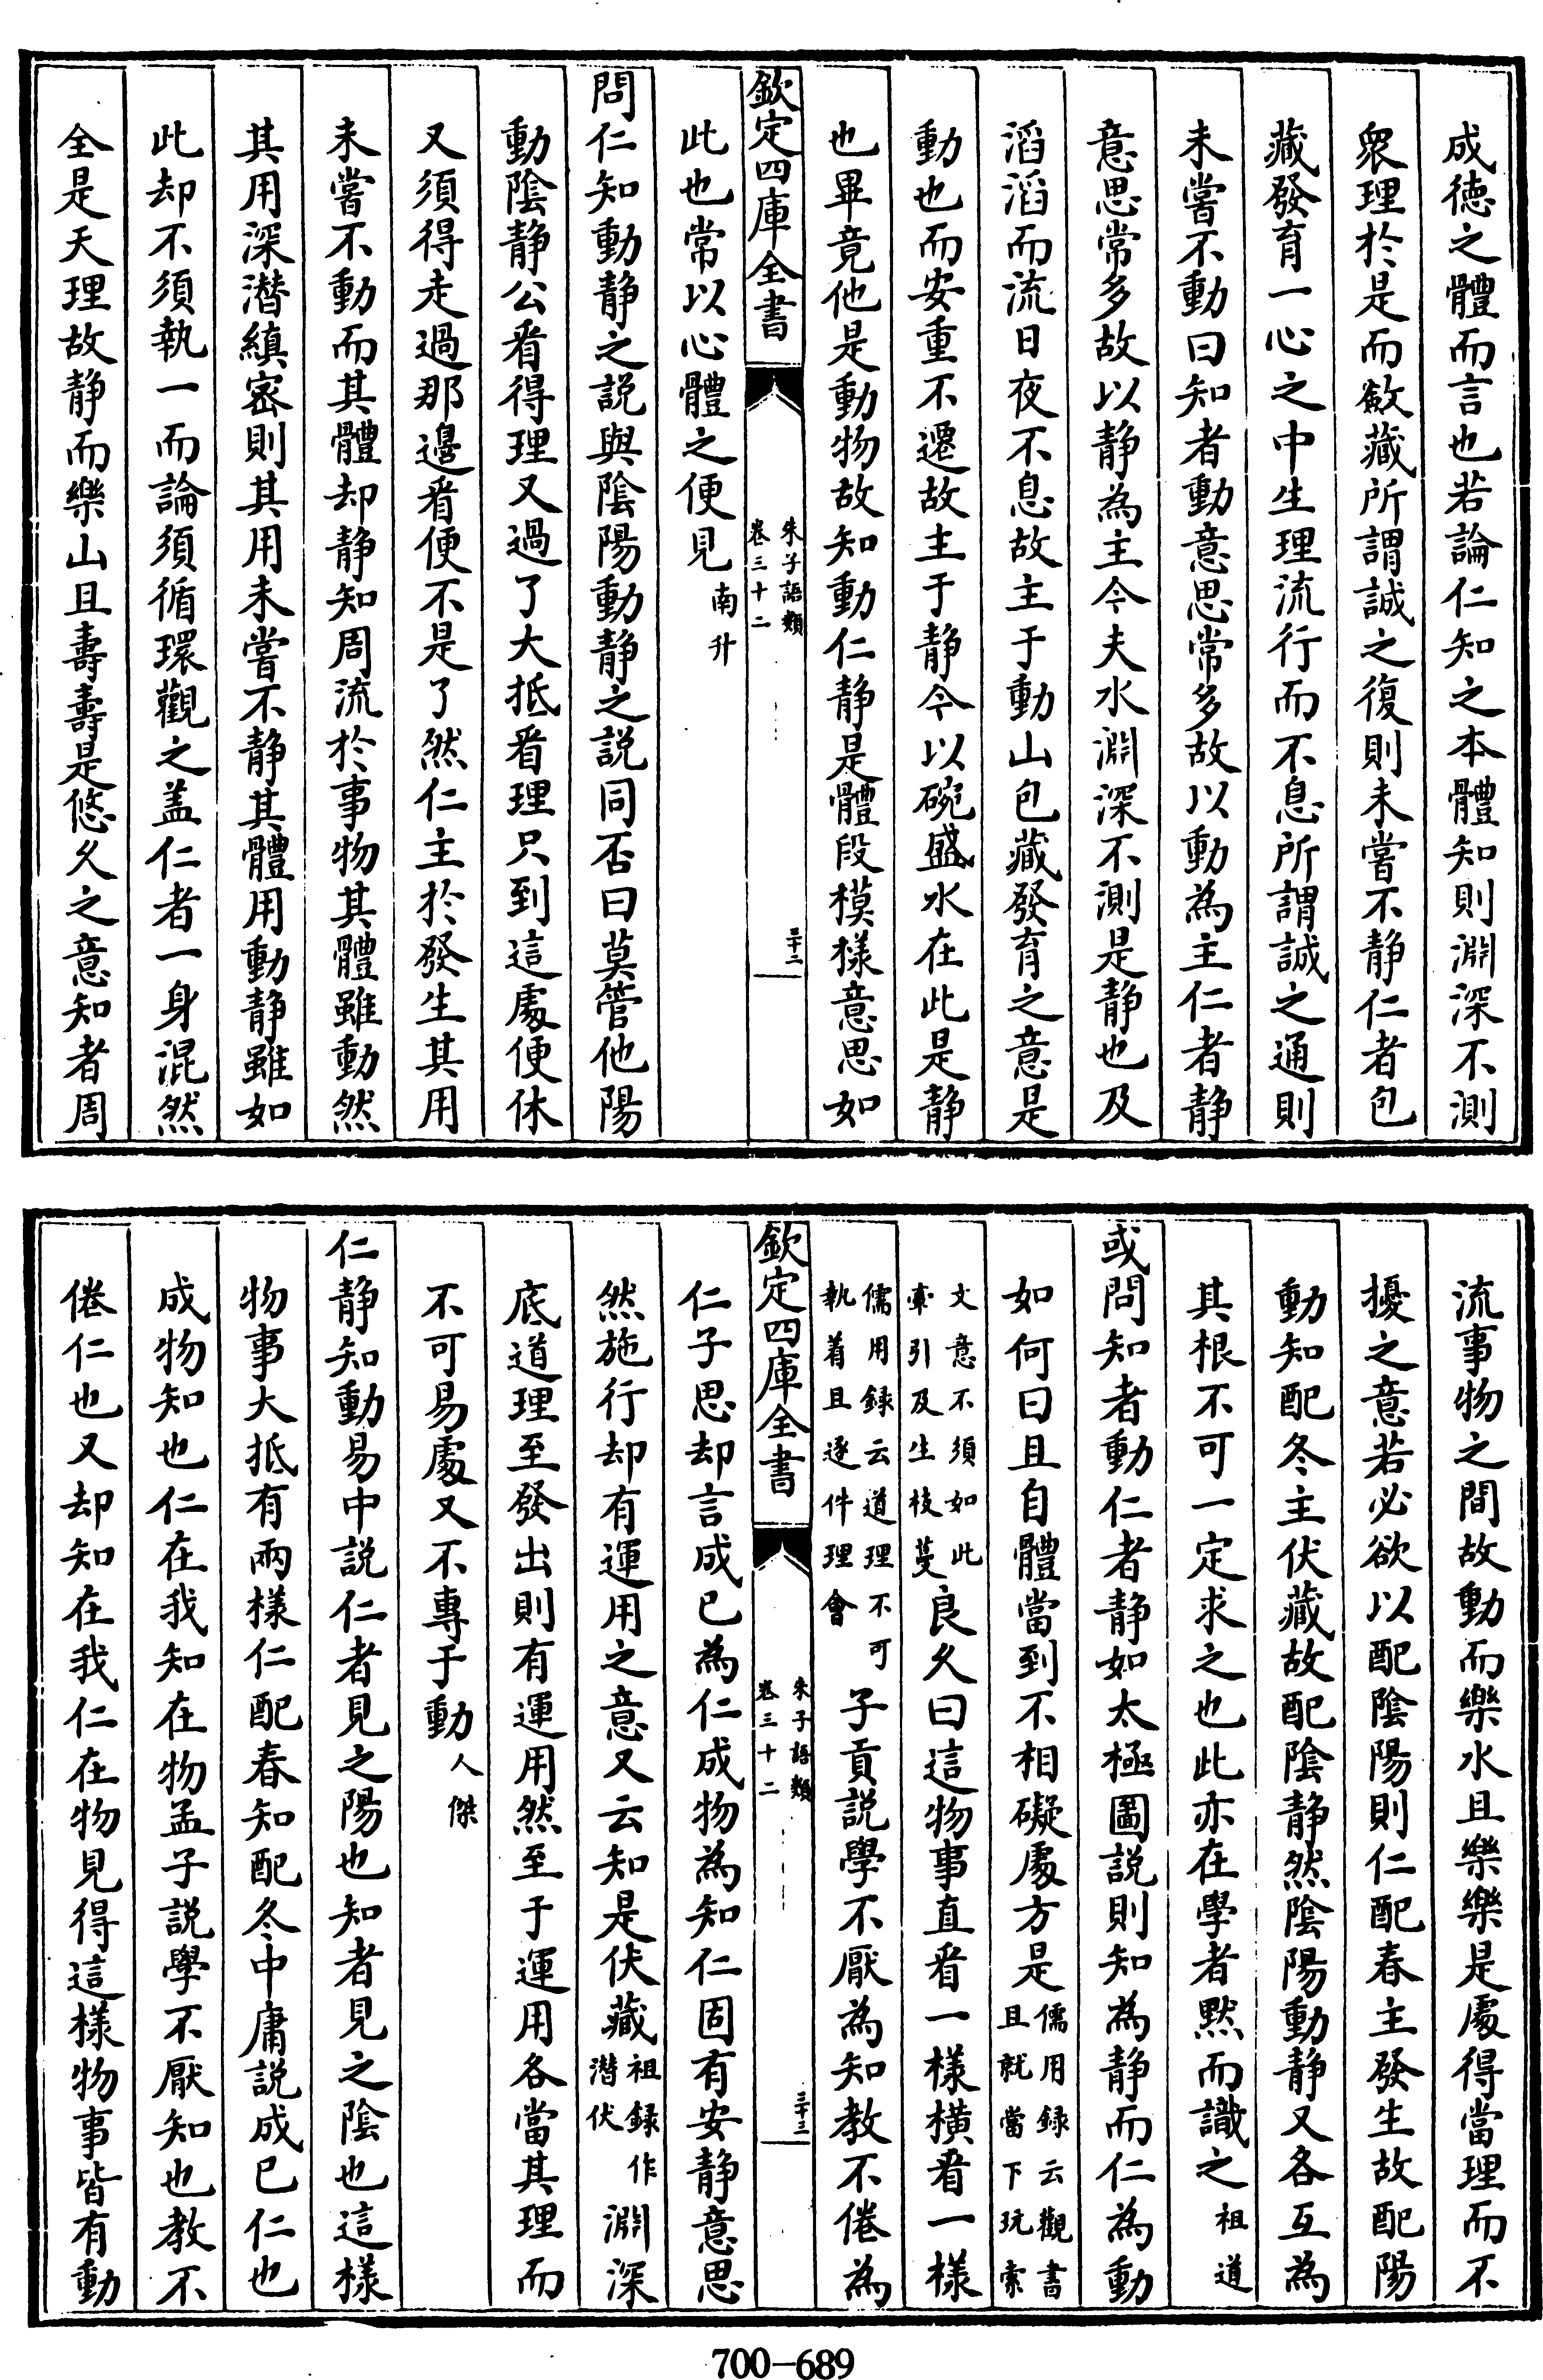 成德之體而言也若論仁知之本體知則淵深不測
衆理於是而斂藏所謂誠之復則未嘗不静仁者包
藏發育一心之中生理流行而不息所謂誠之通則
未嘗不動曰知者動意思常多故以動為主仁者静
意思常多故以静為主今夫水淵深不測是静也及
滔滔而流日夜不息故主于動山包藏發育之意是
動也而安重不遷故主于静今以碗盛水在此是静
也畢竟他是動物故知動仁静是體段模樣意思如
此也常以心體之便見南升
欽定四庫全書
朱子語類
卷三十二
三十二
問仁知動静之説與隂陽動静之説同否曰莫管他陽
動隂静公看得理又過了大抵看理只到這處便休
又須得走過那邊看便不是了然仁主於發生其用
未嘗不動而其體却静知周流於事物其體雖動然
其用深潛縝密則其用未嘗不静其體用動静雖如
此却不須執一而論須循環觀之盖仁者一身混然
全是天理故静而樂山且壽壽是悠久之意知者周
流事物之間故動而樂水且樂樂是處得當理而不
擾之意若必欲以配隂陽則仁配春主發生故配陽
動知配冬主伏藏故配隂静然隂陽動静又各互為
其根不可一定求之也此亦在學者黙而識之祖道
或問知者動仁者静如太極圖説則知為静而仁為動
如何曰且自體當到不相礙處方是儒用録云觀書且就當下玩索
文意不須如此牽引反生枝蔓良久曰這物事直看一樣橫看一樣
儒用録云道理不可執着且逐件理會子貢説學不厭為知教不倦為
欽定四庫全書
朱子語類
卷三十二
三十三
仁子思却言成已為仁成物為知仁固有安静意思
然施行却有運用之意又云知是伏藏祖録作潛伏淵深
底道理至發出則有運用然至于運用各當其理而
不可易處又不專于動人傑
仁静知動易中説仁者見之陽也知者見之隂也這樣
物事大抵有兩樣仁配春知配冬中庸説成已仁也
成物知也仁在我知在物孟子説學不厭知也教不
倦仁也又却知在我仁在物見得這樣物事皆有動
700-689